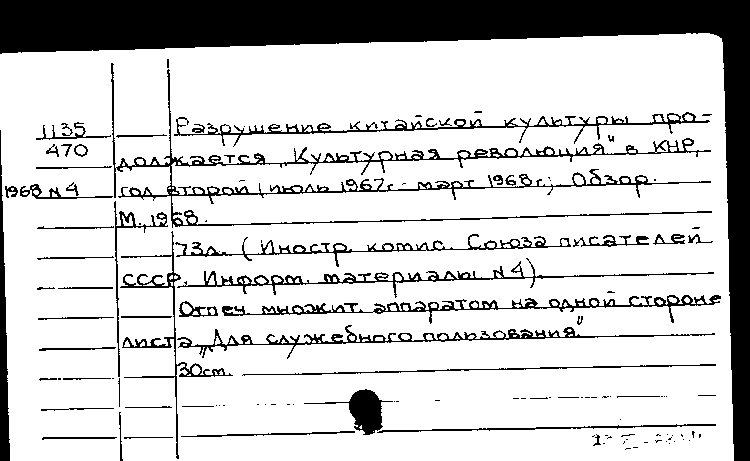 1135 Разрушение китайской культуры про-
470 должается „Культурная революция" в КНР,
1968 N 4 год второй (июль 1967г. - март 1968г.; Обзор.
М., 1968.
73л. (Иностр. комис. Союза писателей
СССР. Информ. материалы N 4).
Отпеч. множит. аппаратом на одной стороне
листа „Для служебного пользования."
30cm.